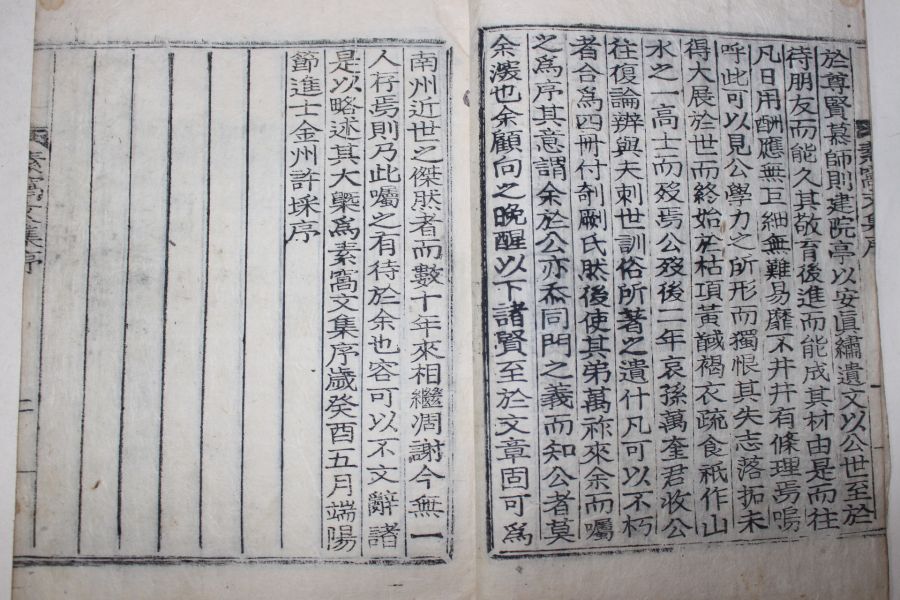 於尊賢慕師則建院亭以安眞繡遺文以公世至於
待朋友而能久其敬育後進而能成其材由是而往
凡日用酬應無巨細無難易靡不井井有條理焉嗚
呼此可以見公學力之所形而獨恨其失志落拓未
得大展於世而終始於枯項黃馘褐衣疏食祇作山
水之一高士而歿焉公歿後二年哀孫萬奎君收公
往復論辨與夫刺世訓俗所著之遺什凡可以不朽
者合爲四冊付剞劂氏肰後使其弟萬祚來余而囑
之爲序其意謂余於公亦忝同門之義而知公者莫
余溇也余顧向之晩醒以下諸賢至於文章固可爲
南州近世之傑肰者而數十年來相繼凋謝今無一
人存焉則乃此囑之有待於余也容可以不文辭諸
是以略述其大槩爲素窩文集序歲癸酉五月端陽
節進士金州許埰序
素窩文集序
素窩文集序
二